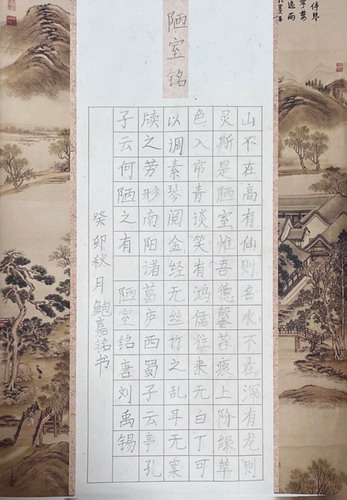 陋室铭
山不在高有仙则名水不在深有龙则
灵斯是陋室惟吾德馨苔痕上阶绿草
色入帘青谈笑有鸿儒往来无白丁可
以调素琴阅金经无丝竹之乱耳无案
牍之劳形南阳诸葛庐西蜀子云亭孔
子云何陋之有 陋室铭唐刘禹锡
癸卯秋月鲍嘉铭书